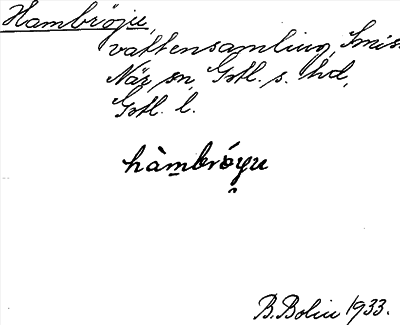 Hambröju,
vattensamling, Smiss
När sn, Gotl. s. hd,
Gotl. l.
hàmbróyu
B. Bolin 1933.